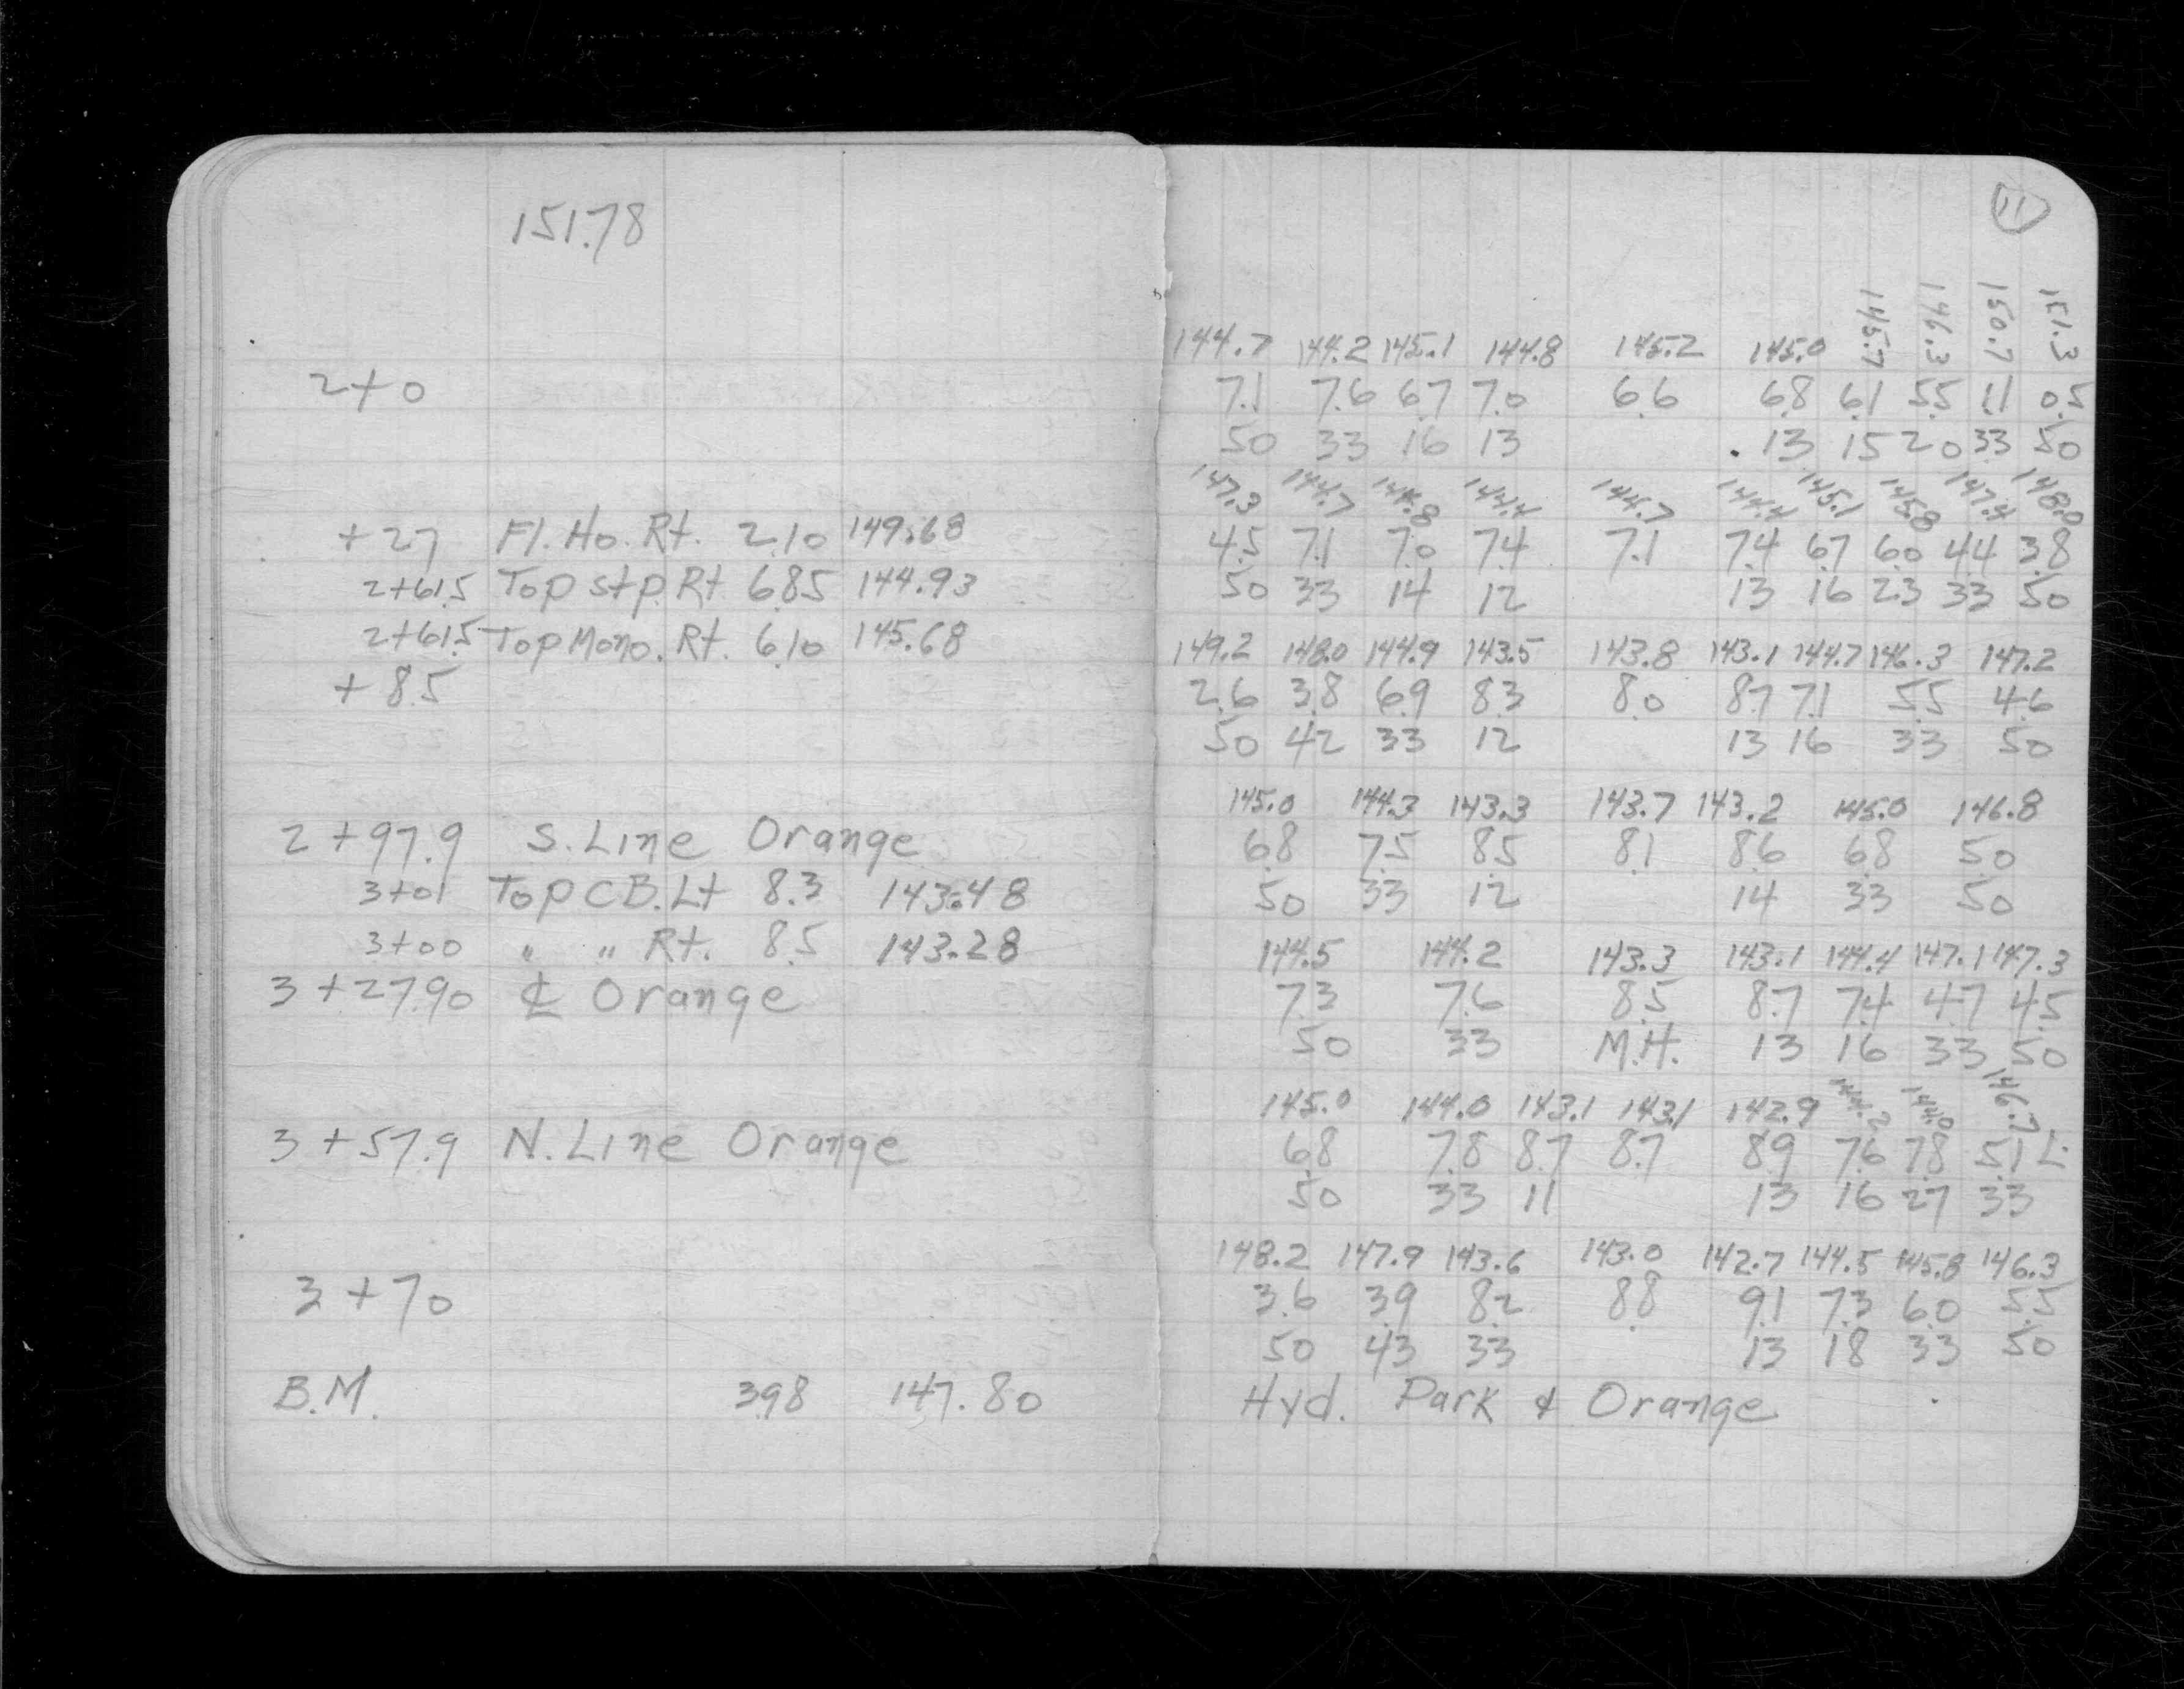 151.78
2+0
+27 Fl. Ho. Rt. 2.10 149.68
2+61.5 Top stp. Rt. 6.85 144.93
2+61.5 Top Mono. Rt. 6.10 145.68
+85
2+97.9 S. Line Orange
3+01 Top C B. Lt 8.3 143.48
3+00 " " Rt. 8.5 143.28
3+27.90 ℄ Orange
3+57.9 N. Line Orange
3+70
B.M. 3.98 147.80
11
144.7 144.2 145.1 144.8 145.2 145.0 145.7 146.3 150.7 151.3
7.1 7.6 6.7 7.0 6.6 6.8 6.1 5.5 1.1 0.5
50 33 16 13 13 15 20 33 50
147.3 144.7 144.8 144.4 144.7 144.4 145.1 145.8 147.4 148.0
4.5 7.1 7.0 7.4 7.1 7.4 6.7 6.0 4.4 3.8
50 33 14 12 13 16 23 33 50
149.2 148.0 144.9 143.5 143.8 143.1 144.7 146.3 147.2
2.6 3.8 6.9 8.3 8.0 8.7 7.1 5.5 4.6
50 42 33 12 13 16 33 50
145.0 144.3 143.3 143.7 143.2 145.0 146.8
6.8 7.5 8.5 8.1 8.6 6.8 5.0
50 33 12 14 33 50
144.5 144.2 143.3 143.1 144.4 147.1 147.3
7.3 7.6 8.5 8.7 7.4 4.7 4.5
50 33 M.H. 13 16 33 50
145.0 144.0 143.1 143.1 142.9 144.2 144.0 146.7
6.8 7.8 8.7 8.7 8.9 7.6 7.8 5.1 L.
50 33 11 13 16 27 33
148.2 147.9 143.6 143.0 142.7 144.5 145.8 146.3
3.6 3.9 8.2 8.8 9.1 7.3 6.0 5.5
50 43 33 13 18 33 50
Hyd. Park & Orange